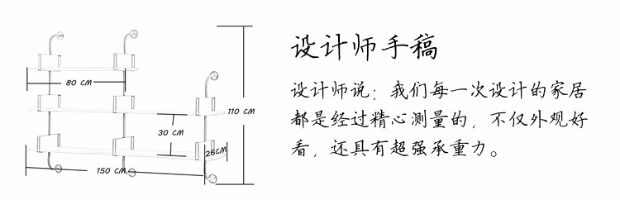 设计师手稿
设计师说：我们每一次设计的家居
都是经过精心测量的，不仅外观好
看，还具有超强承重力。
80 CM
110 CM
30 CM
25CM
150 CM